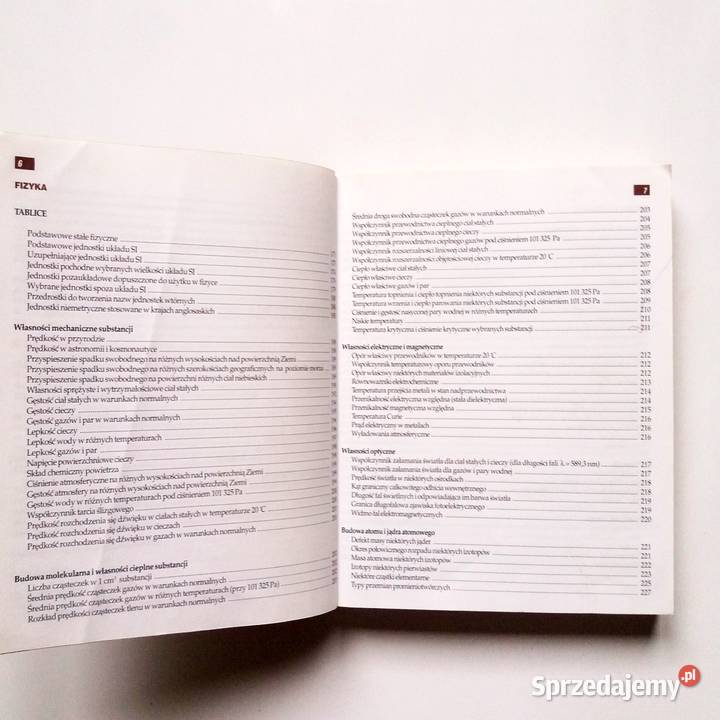 6
FIZYKA
TABLICE
Podstawowe stałe fizyczne
Podstawowe jednostki układu SI
Uzupełniające jednostki układu SI
Jednostki pochodne wybranych wielkości układu SI
Jednostki pozaukładowe dopuszczone do użytku w fizyce
Wybrane jednostki spoza układu SI
Przedrostki do tworzenia nazw jednostek wtórnych
Jednostki niemetryczne stosowane w krajach anglosaskich
Własności mechaniczne substancji
Prędkość w przyrodzie
Prędkość w astronomii i kosmonautyce
Przyspieszenie spadku swobodnego na różnych wysokościach nad powierzchnią Ziemi
Przyspieszenie spadku swobodnego na różnych szerokościach geograficznych na poziomie morza
Przyspieszenie spadku swobodnego na powierzchni różnych ciał niebieskich
Własności sprężyste i wytrzymałościowe ciał stałych
Gęstość ciał stałych w warunkach normalnych
Gęstość cieczy
Gęstość gazów i par w warunkach normalnych
Lepkość cieczy
Lepkość wody w różnych temperaturach
Lepkość gazów i par
Napięcie powierzchniowe cieczy
Skład chemiczny powietrza
Ciśnienie atmosferyczne na różnych wysokościach nad powierzchnią Ziemi
Gęstość atmosfery na różnych wysokościach nad powierzchnią Ziemi
Gęstość wody w różnych temperaturach pod ciśnieniem 101 325 Pa
Współczynnik tarcia ślizgowego
Prędkość rozchodzenia się dźwięku w ciałach stałych w temperaturze 20˚C
Prędkość rozchodzenia się dźwięku w cieczach
Prędkość rozchodzenia się dźwięku w gazach w warunkach normalnych
Budowa molekularna i własności cieplne substancji
Liczba cząsteczek w 1 cm³ substancji
Średnia prędkość cząsteczek gazów w warunkach normalnych
Średnia prędkość cząsteczek gazów w różnych temperaturach (przy 101 325 Pa)
Rozkład prędkości cząsteczek tlenu w warunkach normalnych
7
Średnia droga swobodna cząsteczek gazów w warunkach normalnych 203
Współczynnik przewodnictwa cieplnego ciał stałych 204
Współczynnik przewodnictwa cieplnego cieczy 205
Współczynnik przewodnictwa cieplnego gazów pod ciśnieniem 101 325 Pa 205
Współczynnik rozszerzalności liniowej ciał stałych 206
Współczynnik rozszerzalności objętościowej cieczy w temperaturze 20˚C 206
Ciepło właściwe ciał stałych 207
Ciepło właściwe cieczy 207
Ciepło właściwe gazów i par 208
Temperatura topnienia i ciepło topnienia niektórych substancji pod ciśnieniem 101 325 Pa 208
Temperatura wrzenia i ciepło parowania niektórych substancji pod ciśnieniem 101 325 Pa 209
Ciśnienie i gęstość nasyconej pary wodnej w różnych temperaturach 210
Niskie temperatury 211
Temperatura krytyczna i ciśnienie krytyczne wybranych substancji 211
Własności elektryczne i magnetyczne
Opór właściwy przewodników w temperaturze 20˚C 212
Współczynnik temperaturowy oporu przewodników 212
Opór właściwy niektórych materiałów izolacyjnych 212
Równoważniki elektrochemiczne 213
Temperatura przejścia metali w stan nadprzewodnictwa 214
Przenikalność elektryczna względna (stała dielektryczna) 214
Przenikalność magnetyczna względna 215
Temperatura Curie 216
Prąd elektryczny w metalach 216
Wyładowania atmosferyczne 216
Własności optyczne
Współczynnik załamania światła dla ciał stałych i cieczy (dla długości fali λ = 589,3 nm) 217
Współczynnik załamania światła dla gazów i pary wodnej 217
Prędkość światła w niektórych ośrodkach 218
Kąt graniczny całkowitego odbicia wewnętrznego 218
Długość fal świetlnych i odpowiadająca im barwa światła 219
Granica długofalowa zjawiska fotoelektrycznego 219
Widmo fal elektromagnetycznych 220
Budowa atomu i jądra atomowego
Defekt masy niektórych jąder 221
Okres połowicznego rozpadu niektórych izotopów 221
Masa atomowa niektórych izotopów 222
Izotopy niektórych pierwiastków 223
Niektóre cząstki elementarne 225
Typy przemian promieniotwórczych 227
Sprzedajemy.pl